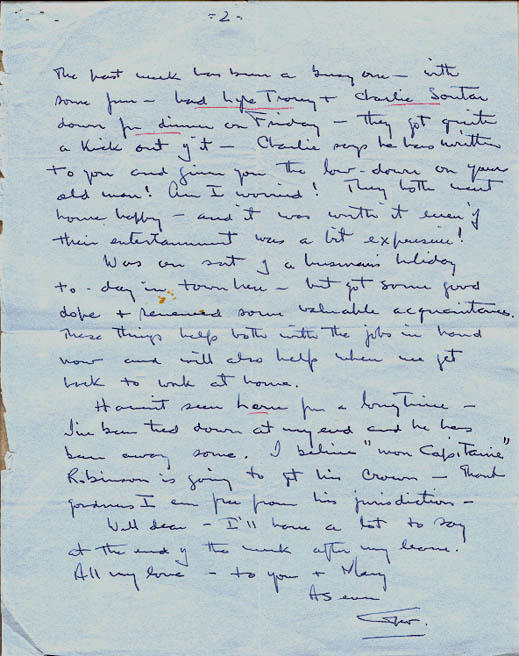 - 2 -
The past week has been a busy one - with
some fun - had Trorey + Charlie Soutar
down for dinner on Friday - they got quite
a kick out of it - Charlie says he has written
to you and given you the low-down on your
old man! Am I worried! They both went
home happy - and it was worth it even if
their entertainment was a bit expensive!
Was on sort of a busman's holiday
to-day in town here - but got some good
dope + renewed some valuable acquaintances.
These things help both with the jobs in hand
now and will also help when we get
back to work at home.
Haven't seen for a long time -
I've been tied down at my end and he has
been away some. I believe "mon Capitaine"
Robinson is going to get his Crown - Thank
goodness I am free from his jurisdiction -
Well dear - I'll have a lot to say
at the end of the week after my leave.
All my love - to you + Mary
As ever